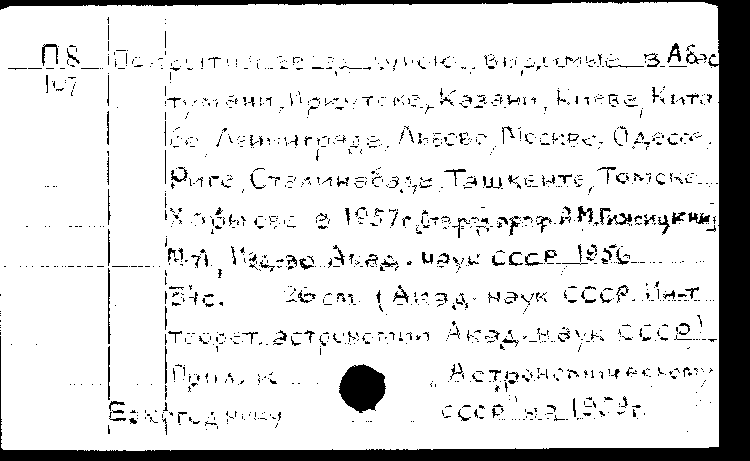 П8 Покрытия звезд луною, видимые в Абас
107 тумани, Иркутске, Казани, Киеве, Кита
бе, Ленинграде, Львове, Москве, Одессе,
Риге, Сталинабаде, Ташкенте, Томске
Харькове в 1957г. проф. А.М. Гижицкий
М-Л, Изд-во Акад. наук СССР, 1956
34с. 26 см (Акад. наук СССР. Ин-т
теорет. астрономии Акад. наук СССР)
Прил. к „Астрономическому
Ежегоднику СССР" на 1959г.